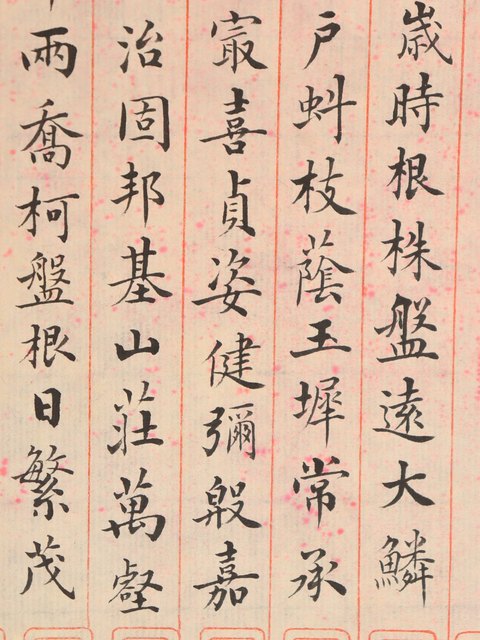 歲時根株盤遠大鱗
户蚪枝蔭玉墀常承
㝡喜貞姿健彌殷嘉
治固邦基山莊萬壑
雨喬柯盤根日繁茂